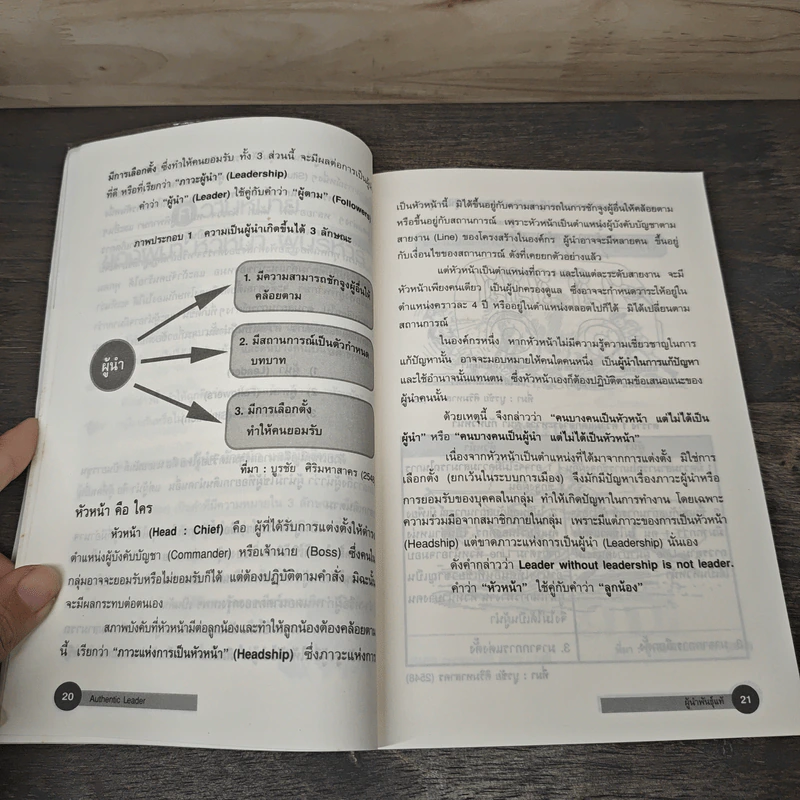 มีการเลือกตั้ง ซึ่งทำให้คนยอมรับ ทั้ง 3 ส่วนนี้ จะมีผลต่อการเป็น
ที่ดี หรือที่เรียกว่า “ภาวะผู้นำ” (Leadership)
คำว่า “ผู้นำ” (Leader) ใช้คู่กับคำว่า “ผู้ตาม” (Followers
ภาพประกอบ 1 ความเป็นผู้นำเกิดขึ้นได้ 3 ลักษณะ
ผู้นำ
1. มีความสามารถชักจูงผู้อื่นให้
คล้อยตาม
2. มีสถานการณ์เป็นตัวกำหนด
บทบาท
3. มีการเลือกตั้ง
ทำให้คนยอมรับ
ที่มา : บูรชัย ศิริมหาสาคร (254
หัวหน้า คือ ใคร
หัวหน้า (Head : Chief) คือ ผู้ที่ได้รับการแต่งตั้งให้ดำร
ตำแหน่งผู้บังคับบัญชา (Commander) หรือเจ้านาย (Boss) ซึ่งคนใน
กลุ่มอาจจะยอมรับหรือไม่ยอมรับก็ได้ แต่ต้องปฏิบัติตามคำสั่ง มิฉะนั้น
จะมีผลกระทบต่อตนเอง
สภาพบังคับที่หัวหน้ามีต่อลูกน้องและทำให้ลูกน้องต้องคล้อยตาม
นี้ เรียกว่า “ภาวะแห่งการเป็นหัวหน้า” (Headship) ซึ่งภาวะแห่งการ
20 Authentic Leader
เป็นหัวหน้านี้ มิได้ขึ้นอยู่กับความสามารถในการชักจูงผู้อื่นให้คล้อยตาม
หรือขึ้นอยู่กับสถานการณ์ เพราะหัวหน้าเป็นตำแหน่งผู้บังคับบัญชาตาม
สายงาน (Line) ของโครงสร้างในองค์กร ผู้นำอาจจะมีหลายคน ขึ้นอยู่
กับเงื่อนไขของสถานการณ์ ดังที่เคยยกตัวอย่างแล้ว
แต่หัวหน้าเป็นตำแหน่งที่ถาวร และในแต่ละระดับสายงาน จะมี
หัวหน้าเพียงคนเดียว เป็นผู้ปกครองดูแล ซึ่งอาจจะกำหนดวาระให้อยู่ใน
ตำแหน่งคราวละ 4 ปี หรืออยู่ในตำแหน่งตลอดไปก็ได้ มิได้เปลี่ยนตาม
สถานการณ์
ในองค์กรหนึ่ง หากหัวหน้าไม่มีความรู้ความเชี่ยวชาญในการ
แก้ปัญหานั้น อาจจะมอบหมายให้คนใดคนหนึ่ง เป็นผู้นำในการแก้ปัญหา
และใช้อำนาจนั้นแทนตน ซึ่งหัวหน้าเองก็ต้องปฏิบัติตามข้อเสนอแนะของ
ผู้นำคนนั้น
ด้วยเหตุนี้ จึงกล่าวว่า “คนบางคนเป็นหัวหน้า แต่ไม่ได้เป็น
ผู้นำ” หรือ “คนบางคนเป็นผู้นำ แต่ไม่ได้เป็นหัวหน้า”
เนื่องจากหัวหน้าเป็นตำแหน่งที่ได้มาจากการแต่งตั้ง มิใช่การ
เลือกตั้ง (ยกเว้นในระบบการเมือง) จึงมักมีปัญหาเรื่องภาวะผู้นำหรือ
การยอมรับของบุคคลในกลุ่ม ทำให้เกิดปัญหาในการทำงาน โดยเฉพาะ
ความร่วมมือจากสมาชิกภายในกลุ่ม เพราะมีแต่ภาวะของการเป็นหัวหน้า
(Headship) แต่ขาดภาวะแห่งการเป็นผู้นำ (Leadership) นั้นเอง
ดังคำกล่าวว่า Leader without leadership is not leader.
คำว่า “หัวหน้า” ใช้คู่กับคำว่า “ลูกน้อง”
ผู้นำพันธุ์แท้ 21